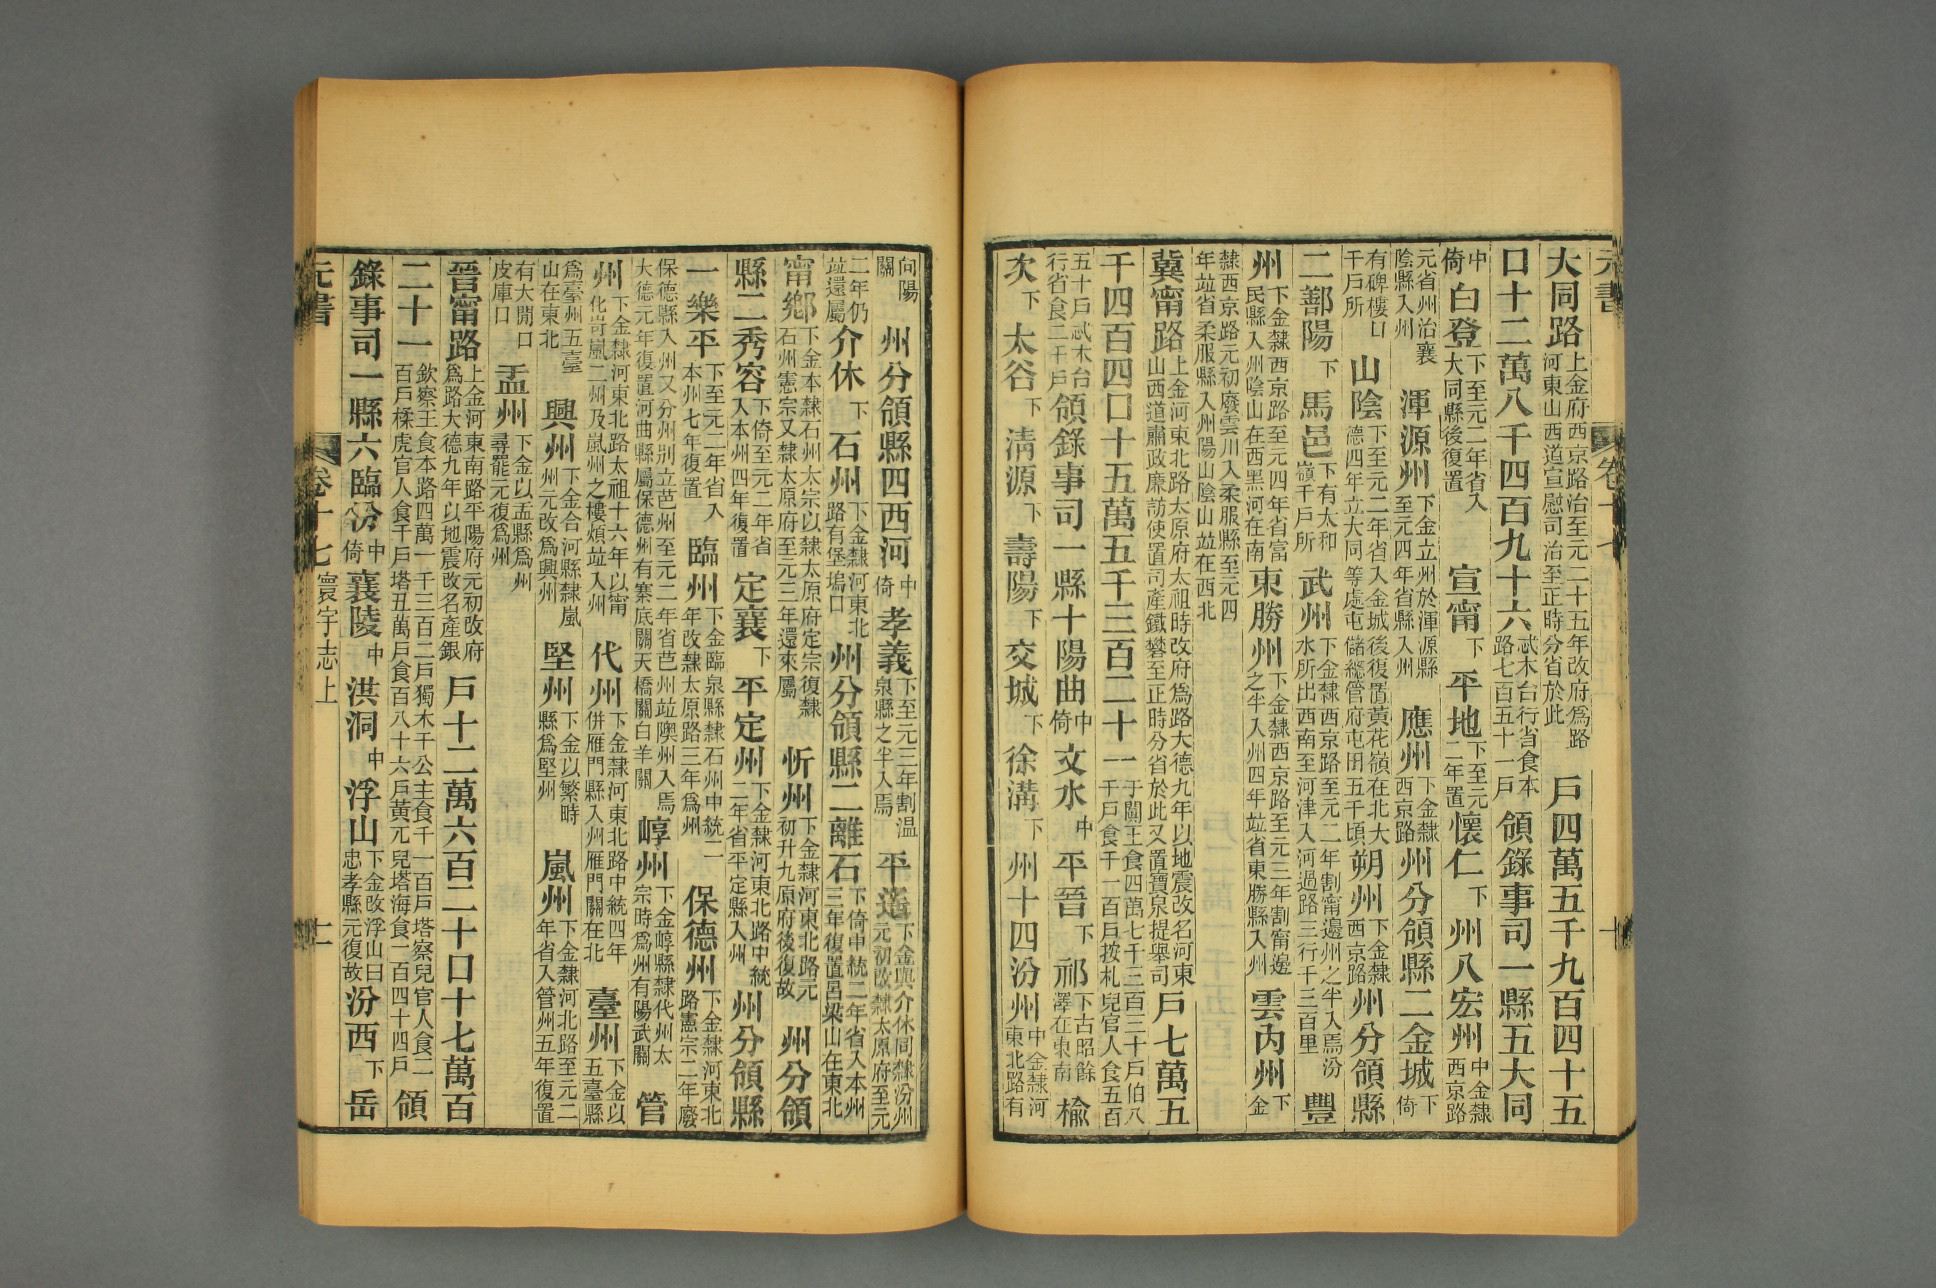 元書
卷十七
十
大同路上金府西京路治至元二十五年改府爲路河東山西道宣慰司治至正時分省於此 戶四萬五千九百四十五
口十二萬八千四百九十六忒木台行省食本路七百五十一戶領錄事司一縣五大同
中倚白登下至元二年省入大同縣後復置 宣甯下平地下至元二年置懷仁下 州八宏州中金隸西京路
元省州治襄陰縣入州 渾源州下金立州於渾源縣至元四年省縣入州 應州下金隸西京路州分領縣二金城下倚
有碑樓口千戶所 山陰下至元二年省入金城後復置黃花嶺在北大德四年立大同等處屯儲總管府屯田五千頃朔州下金隸西京路州分領縣
二鄯陽下馬邑下有太和嶺千戶所 武州下金隸西京路至元二年割甯邊州之半入焉汾水所出西南至河津入河過路三行千三百里 豐
州下金隸西京路至元四年省富民縣入州陰山在西黑河在南東勝州下金隸西京路至元三年割甯邊之半入州四年竝省東勝縣入州 雲內州下金
隸西京路元初廢雲川入柔服縣至元四年竝省柔服縣入州陽山陰山竝在西北
冀甯路上金河東北路太原府太祖時改府爲路大德九年以地震改名河東山西道肅政廉訪使置司產鐵礬至正時分省於此又置寶泉提舉司戶七萬五
千四百四口十五萬五千三百二十一于闐王食四萬七千三百三十戶伯八千戶食千一百戶按札兒官人食五百
五十戶忒木台行省食二千戶領錄事司一縣十陽曲中倚文水中平晉下祁下古昭餘澤在東南 楡
次下太谷下清源下壽陽下交城下徐溝下 州十四汾州中金隸河東北路有
向陽關 州分領縣四西河中倚孝義下至元三年割溫泉縣之半入焉 平遙下金與介休同隸汾州元初改隸太原府至元
二年仍竝還屬介休下石州下金隸河東北路有堡塢口 州分領縣二離石下倚中統二年省入本州三年復置呂梁山在東北
甯鄉下金本隸石州太宗以隸太原府定宗復隸石州憲宗又隸太原府至元三年還來屬 忻州下金隸河東北路元初升九原府後復故 州分領
縣二秀容下倚至元二年省入本州四年復置 定襄下平定州下金隸河東北路中統二年省平定縣入州 州分領縣
一樂平下至元二年省入本州七年復置 臨州下金臨泉縣隸石州中統二年改隸太原路三年爲州 保德州下金隸河東北路憲宗二年廢
保德縣入州又分州別立芭州至元二年省芭州竝隩州入焉大德元年復置河曲縣屬保德州有寨底關天橋關白羊關 崞州下金崞縣隸代州太宗時爲州有陽武關 管
州下金隸河東北路太祖十六年以甯化岢嵐二州及嵐州之樓煩竝入州 代州下金隸河東北路中統四年併雁門縣入州雁門關在北 臺州下金以五臺縣
爲臺州五臺山在東北 興州下金合河縣隸嵐州元改爲興州 堅州下金以繁畤縣爲堅州 嵐州下金隸河北路至元二年省入管州五年復置
有大閒口皮庫口 盂州下金以盂縣爲州尋罷元復爲州
晉甯路上金河東南路平陽府元初改府爲路大德九年以地震改名產銀 戶十二萬六百二十口十七萬百
二十一欽察王食本路四萬一千三百二戶獨木干公主食千一百戶塔察兒官人食二百戶楺虎官人食千戶塔丑萬戶食百八十六戶黃兀兒塔海食一百四十四戶 領
錄事司一縣六臨汾中倚襄陵中洪洞中浮山下金改浮山曰忠孝縣元復故汾西下岳
元書
卷十七
寰宇志上
十一